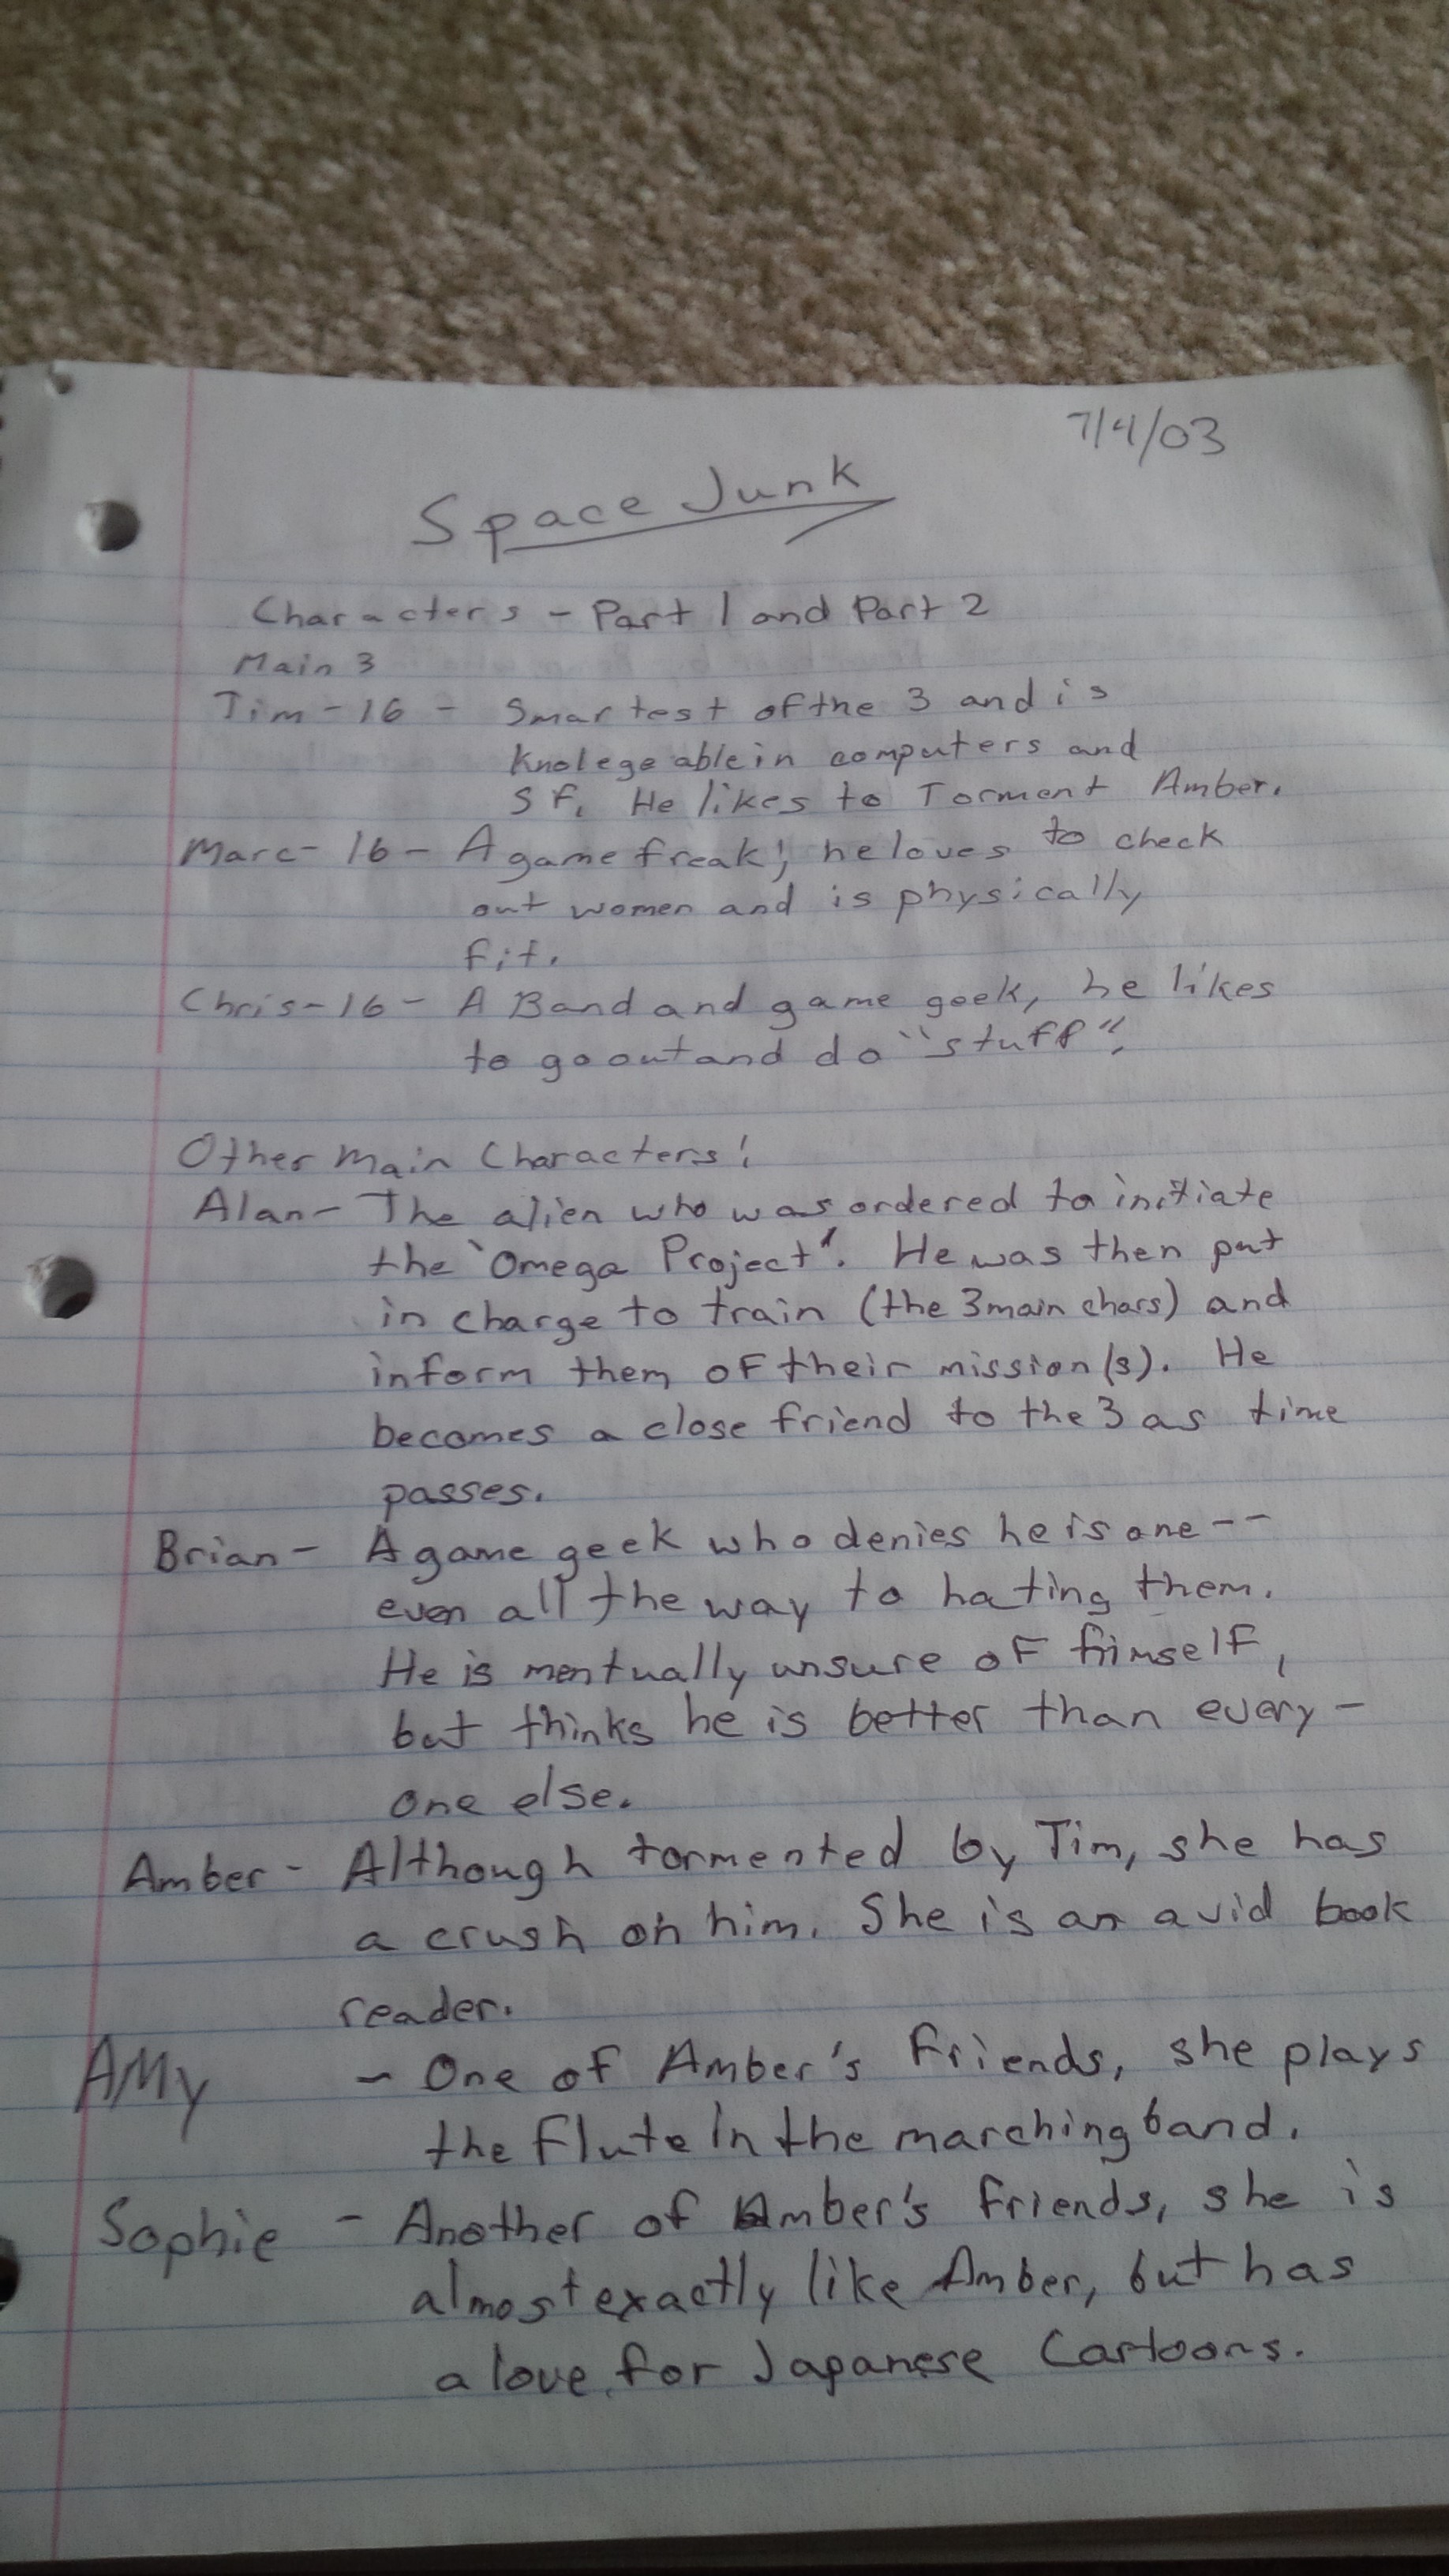 7/4/03
Space Junk
Characters - Part 1 and Part 2
Main 3
Tim - 16 - Smartest of the 3 and is
Knolegeable in computers and
SF. He likes to Torment Amber.
Marc - 16 - A game freak; he loves to check
out women and is physically
fit.
Chris - 16 - A Band and game geek, he likes
to go out and do "stuff".
Other Main Characters:
Alan - The alien who was ordered to initiate
the "Omega Project". He was then put
in charge to train (the 3 main chars) and
inform them of their mission(s). He
becomes a close friend to the 3 as time
passes.
Brian - A game geek who denies he is one --
even all the way to hating them.
He is mentually unsure of himself,
but thinks he is better than every-
one else.
Amber - Although tormented by Tim, she has
a crush on him. She is an avid book
reader.
AMy - One of Amber's friends, she plays
the flute in the marching band.
Sophie - Another of Amber's friends, she is
almost exactly like Amber, but has
a love for Japanese Cartoons.